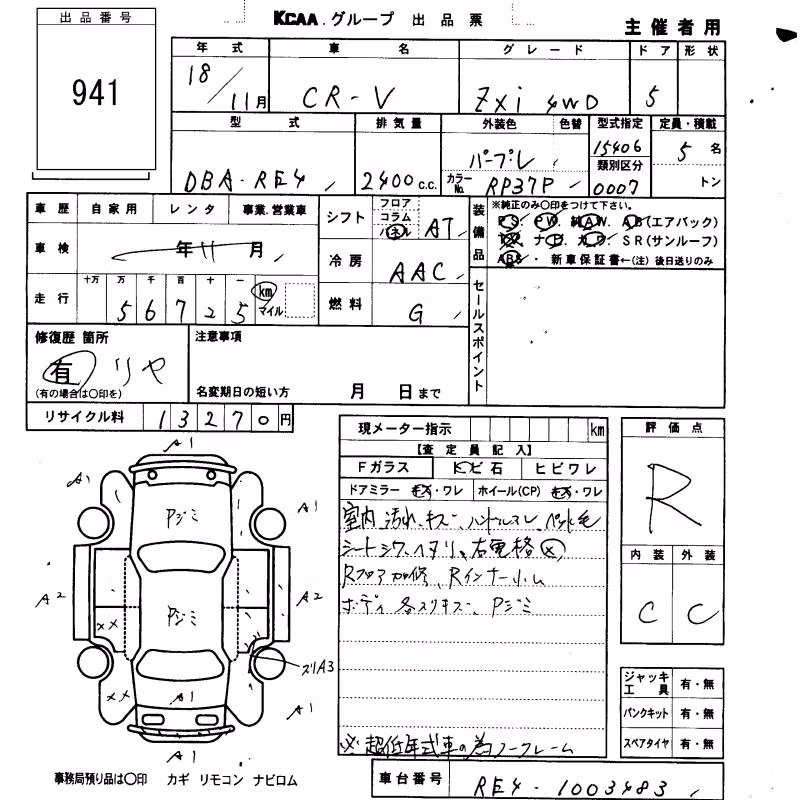 出品番号
941
KCAA グループ 出品票
主催者用
年式 車名 グレード ドア 形状
18/11月 CR-V ZXi 4WD 5
型式 排気量 外装色 色替 型式指定 定員・積載
DBA-RE4 2400c.c. パープル 15406 5名
カラーNo. RP37P 類別区分 0007 トン
車歴 自家用 レンタ 事業.営業車
車検 年11月
走行 十万 万 千 百 十 一
56725 km マイル
シフト フロア コラム パネル AT
冷房 AAC
燃料 G
装備品 ※純正のみ〇印をつけて下さい。
PS. PW. 純AW. AB(エアバック)
TV. ナビ. カワ. SR(サンルーフ)
ABS・ 新車保証書←(注) 後日送りのみ
セールスポイント
修復歴 箇所
有 リヤ
(有の場合は〇印を)
注意事項
名変期日の短い方 月 日まで
リサイクル料 13270円
現メーター指示 km
【査定員記入】
Fガラス トビ石 ヒビワレ
ドアミラー キズ・ワレ ホイール(CP) キズ・ワレ
室内 汚れ、キズ、ハンドルスレ、ペット毛
シートシワ、ヘタリ、右電格×
Rフロア加修、Rインナー小ム
ボディ各スリキズ、Pジミ
※超低年式車の為ノークレーム
評価点
R
内装 外装
C C
ジャッキ工具 有・無
パンクキット 有・無
スペアタイヤ 有・無
A1
A1
A1
Pジミ
A2
A2
Pジミ
××
ズリA3
××
A1
A1
A1
事務局預り品は〇印 カギ リモコン ナビロム
車台番号 RE4-1003483